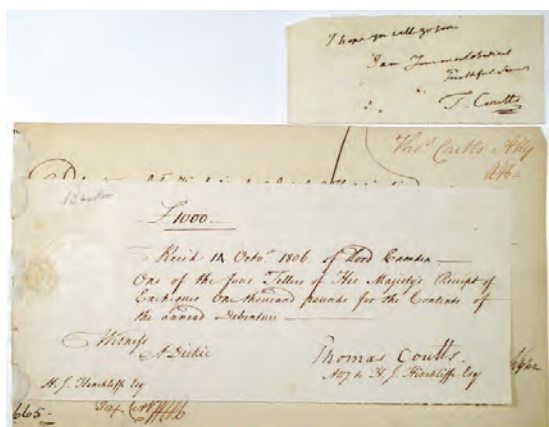 I hope you will go soon
I am Your most obedient
Faithful Serv
T. Coutts
Thos Coutts Atty
£1000
Recd 1 Octor 1806 of Lord Camden
One of the four Tellers of His Majesty's Receipt of
Exchequer One thousand pounds for the Contents of
the annexed Debenture
Witness
A Dickie
Thomas Coutts.
Atty to H J Hinchliffe Esq
H. J. Hinchliffe Esq
665